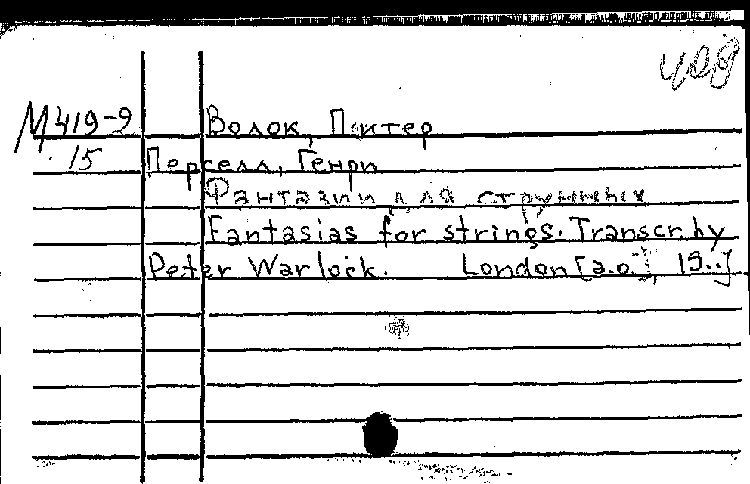 408
М419-9 Волок, Питер
15 Перселл, Генри
Фантазии для струнных
Fantasias for strings. Transcr. by
Peter Warlock. London [a.o.], 19..]